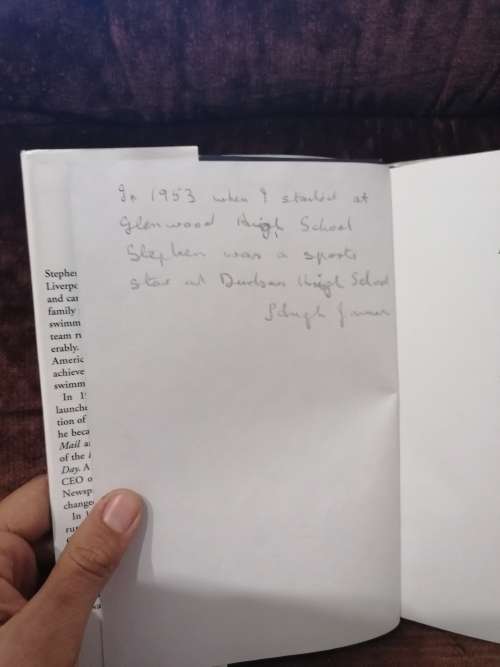 In 1953 when I started at
Glenwood High School
Stephen was a sports
star at Durban High School
Stephen
Liverpo
and car
family
swimm
team r
erably.
Americ
achieve
swimm
In 19
launche
tion of
he beca
Mail a
of the
Day. A
CEO o
Newsp
change
In